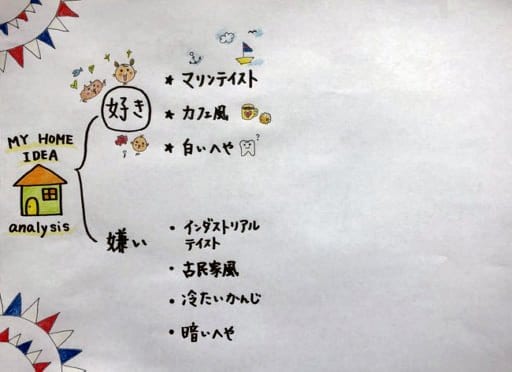 MY HOME
IDEA
analysis
好き
★ マリンテイスト
★ カフェ風
★ 白いへや
?
嫌い
・インダストリアル
テイスト
・古民家風
・冷たいかんじ
・暗いへや